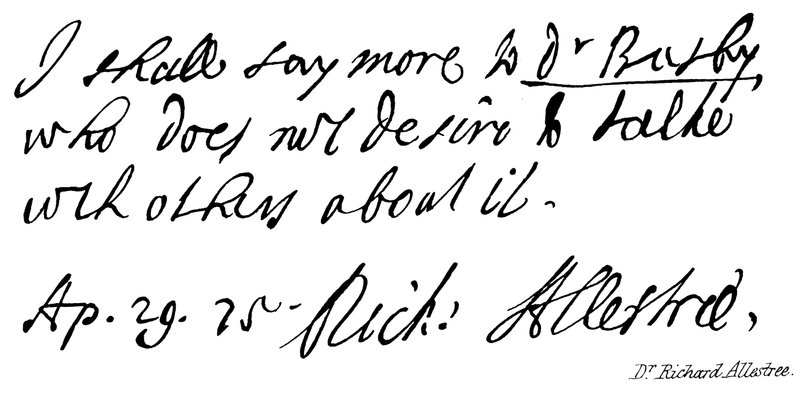 I shall say more to Dr Busby,
who does not desire to talke
with others about it.
Ap. 29. 75 Rich: Allestree,
Dr. Richard Allestree.